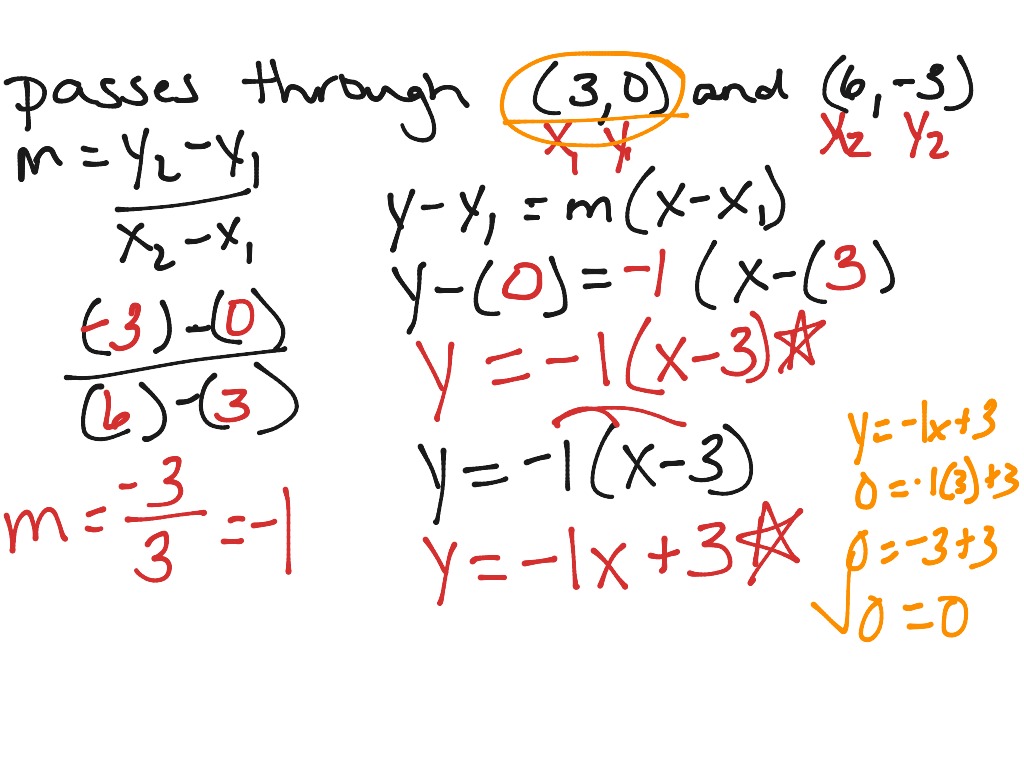 passes through (3,0) and (6,-3)
x₁ y₁ x₂ y₂
m = y₂-y₁
x₂-x₁
(-3)-(0)
(6)-(3)
m = -3
3
= -1
y-y₁ = m(x-x₁)
y-(0) = -1 (x-(3)
y = -1(x-3)☆
y = -1(x-3)
y = -1x+3☆
y=-1x+3
0=-1(3)+3
0=-3+3
√0=0